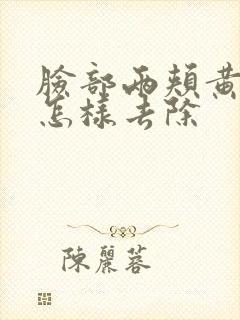 臉部兩頰黃
怎樣去除
陳麗蓉